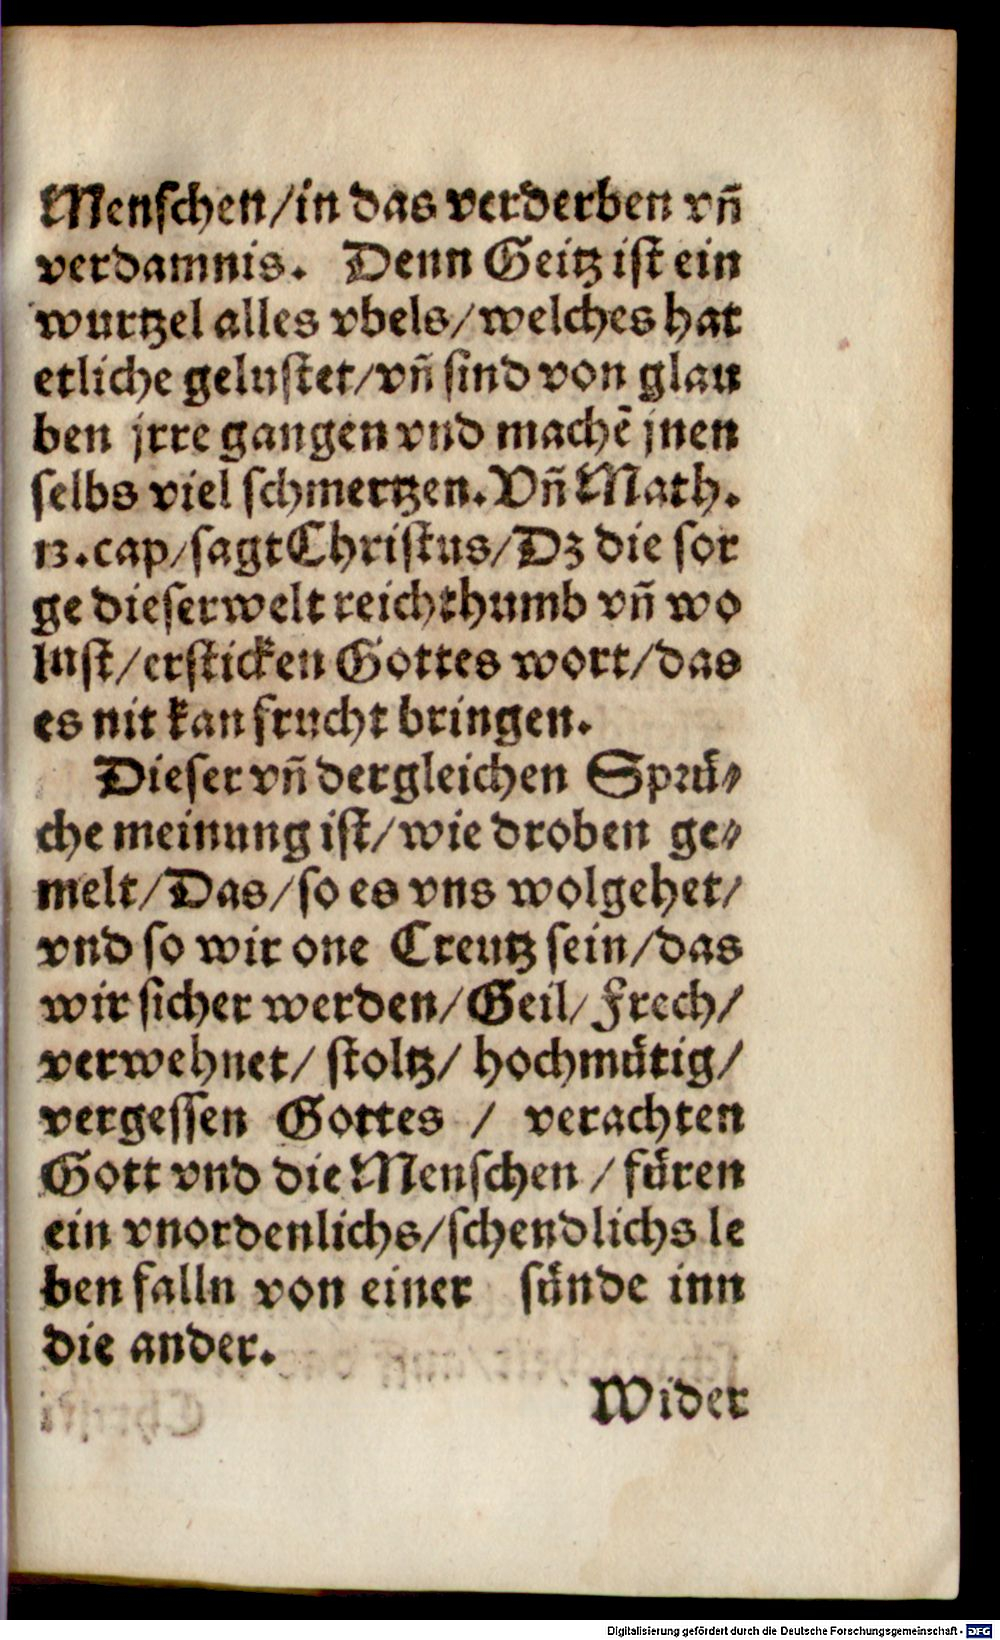 Menschen/in das verderben vñ
verdamnis. Denn Geitz ist ein
wurtzel alles vbels/welches hat
etliche gelustet/vñ sind von glau
ben jrre gangen vnd machẽ jnen
selbs viel schmertzen. Vñ Math.
13.cap/sagt Christus/Dz die sor
ge dieser welt reichthumb vñ wo
lust/ersticken Gottes wort/das
es nit kan frucht bringen.
Dieser vñ dergleichen Sprü⸗
che meinung ist/wie droben ge⸗
melt/Das/so es vns wolgehet/
vnd so wir one Creutz sein/das
wir sicher werden/Geil/Frech/
verwehnet/ stoltz/ hochmütig/
vergessen Gottes / verachten
Gott vnd die Menschen / füren
ein vnordenlichs/schendlichs le
ben falln von einer sünde inn
die ander.
Wider
Digitalisierung gefördert durch die Deutsche Forschungsgemeinschaft - DFG